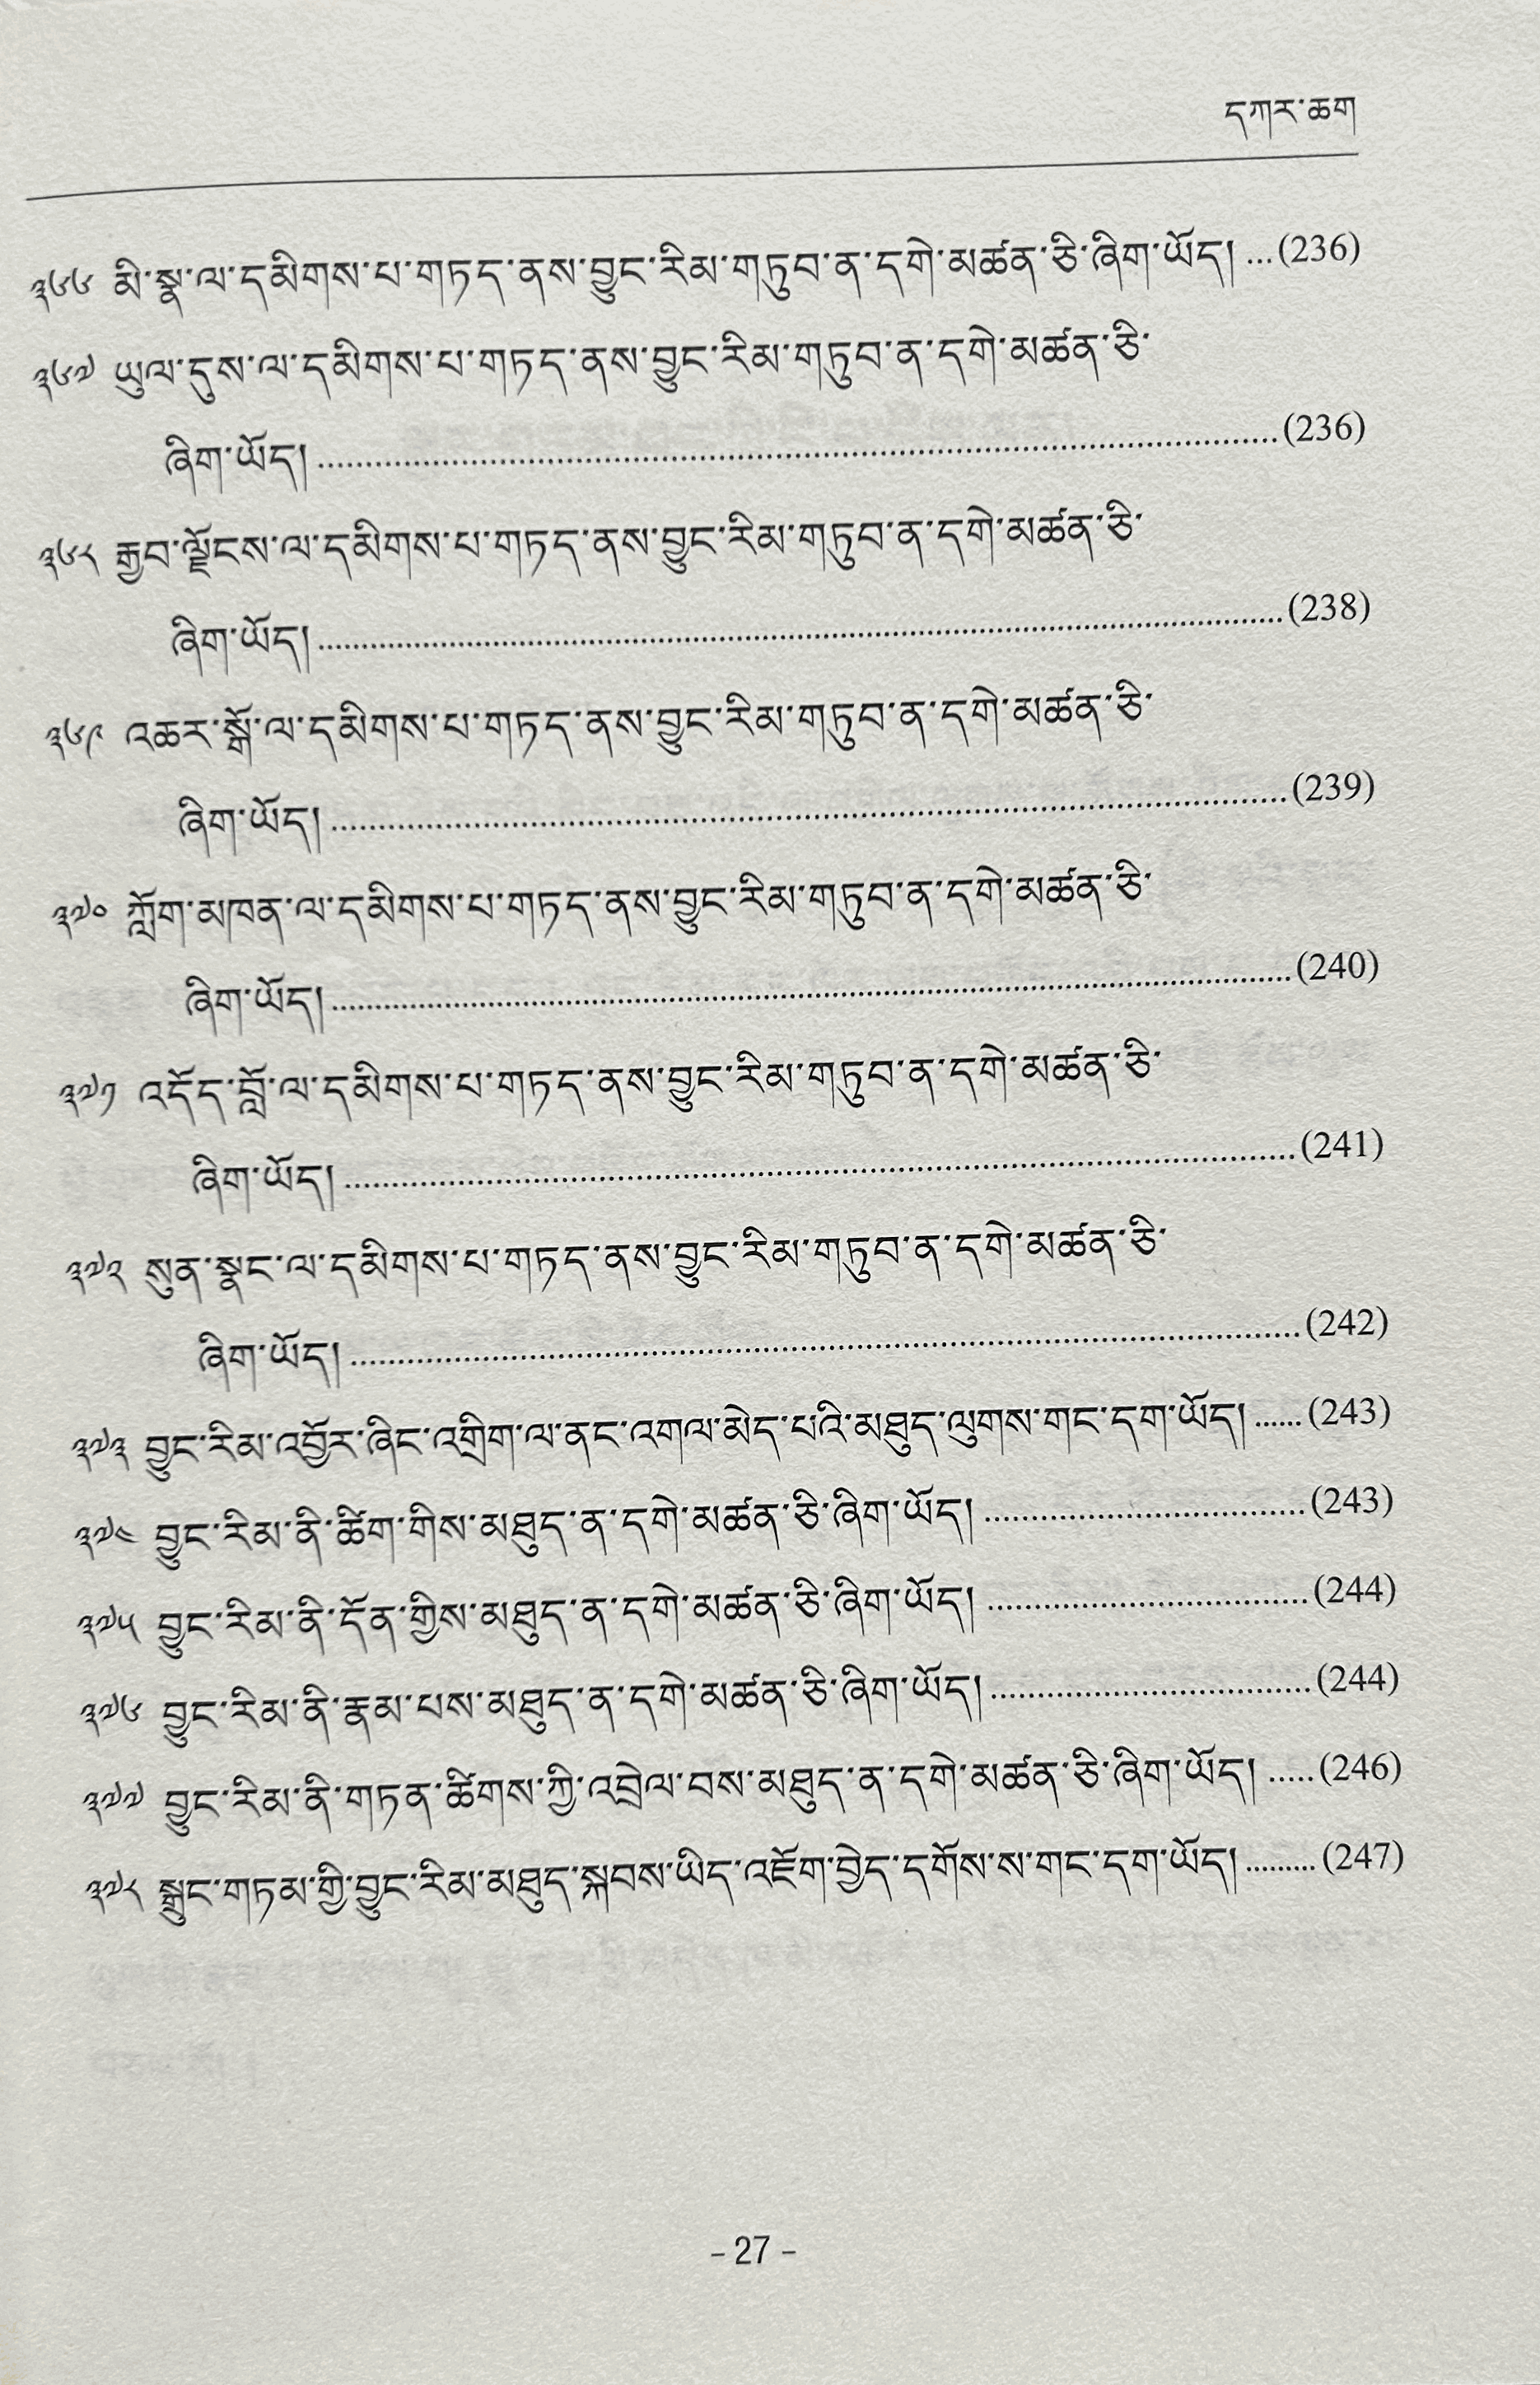 དཀར་ཆག
༣༦༦ མི་སྣ་ལ་དམིགས་པ་གཏད་ནས་བྱུང་རིམ་གཏུབ་ན་དགེ་མཚན་ཅི་ཞིག་ཡོད། ...(236)
༣༦༧ ཡུལ་དུས་ལ་དམིགས་པ་གཏད་ནས་བྱུང་རིམ་གཏུབ་ན་དགེ་མཚན་ཅི་
ཞིག་ཡོད། ........................................(236)
༣༦༨ རྒྱབ་ལྗོངས་ལ་དམིགས་པ་གཏད་ནས་བྱུང་རིམ་གཏུབ་ན་དགེ་མཚན་ཅི་
ཞིག་ཡོད། ........................................(238)
༣༦༩ འཆར་སྒོ་ལ་དམིགས་པ་གཏད་ནས་བྱུང་རིམ་གཏུབ་ན་དགེ་མཚན་ཅི་
ཞིག་ཡོད། ........................................(239)
༣༧༠ ཀློག་མཁན་ལ་དམིགས་པ་གཏད་ནས་བྱུང་རིམ་གཏུབ་ན་དགེ་མཚན་ཅི་
ཞིག་ཡོད། ........................................(240)
༣༧༡ འདོད་བློ་ལ་དམིགས་པ་གཏད་ནས་བྱུང་རིམ་གཏུབ་ན་དགེ་མཚན་ཅི་
ཞིག་ཡོད། ........................................(241)
༣༧༢ སུན་སྣང་ལ་དམིགས་པ་གཏད་ནས་བྱུང་རིམ་གཏུབ་ན་དགེ་མཚན་ཅི་
ཞིག་ཡོད། ........................................(242)
༣༧༣ བྱུང་རིམ་འབྱོར་ཞིང་འགྲིག་ལ་ནང་འགལ་མེད་པའི་མཐུད་ལུགས་གང་དག་ཡོད། ......(243)
༣༧༤ བྱུང་རིམ་ནི་ཚིག་གིས་མཐུད་ན་དགེ་མཚན་ཅི་ཞིག་ཡོད། ..................(243)
༣༧༥ བྱུང་རིམ་ནི་དོན་གྱིས་མཐུད་ན་དགེ་མཚན་ཅི་ཞིག་ཡོད། ..................(244)
༣༧༦ བྱུང་རིམ་ནི་རྣམ་པས་མཐུད་ན་དགེ་མཚན་ཅི་ཞིག་ཡོད། ..................(244)
༣༧༧ བྱུང་རིམ་ནི་གཏན་ཚིགས་ཀྱི་འབྲེལ་བས་མཐུད་ན་དགེ་མཚན་ཅི་ཞིག་ཡོད། .....(246)
༣༧༨ སྒྲུང་གཏམ་གྱི་བྱུང་རིམ་མཐུད་སྐབས་ཡིད་འཇོག་བྱེད་དགོས་ས་གང་དག་ཡོད། .........(247)
– 27 –